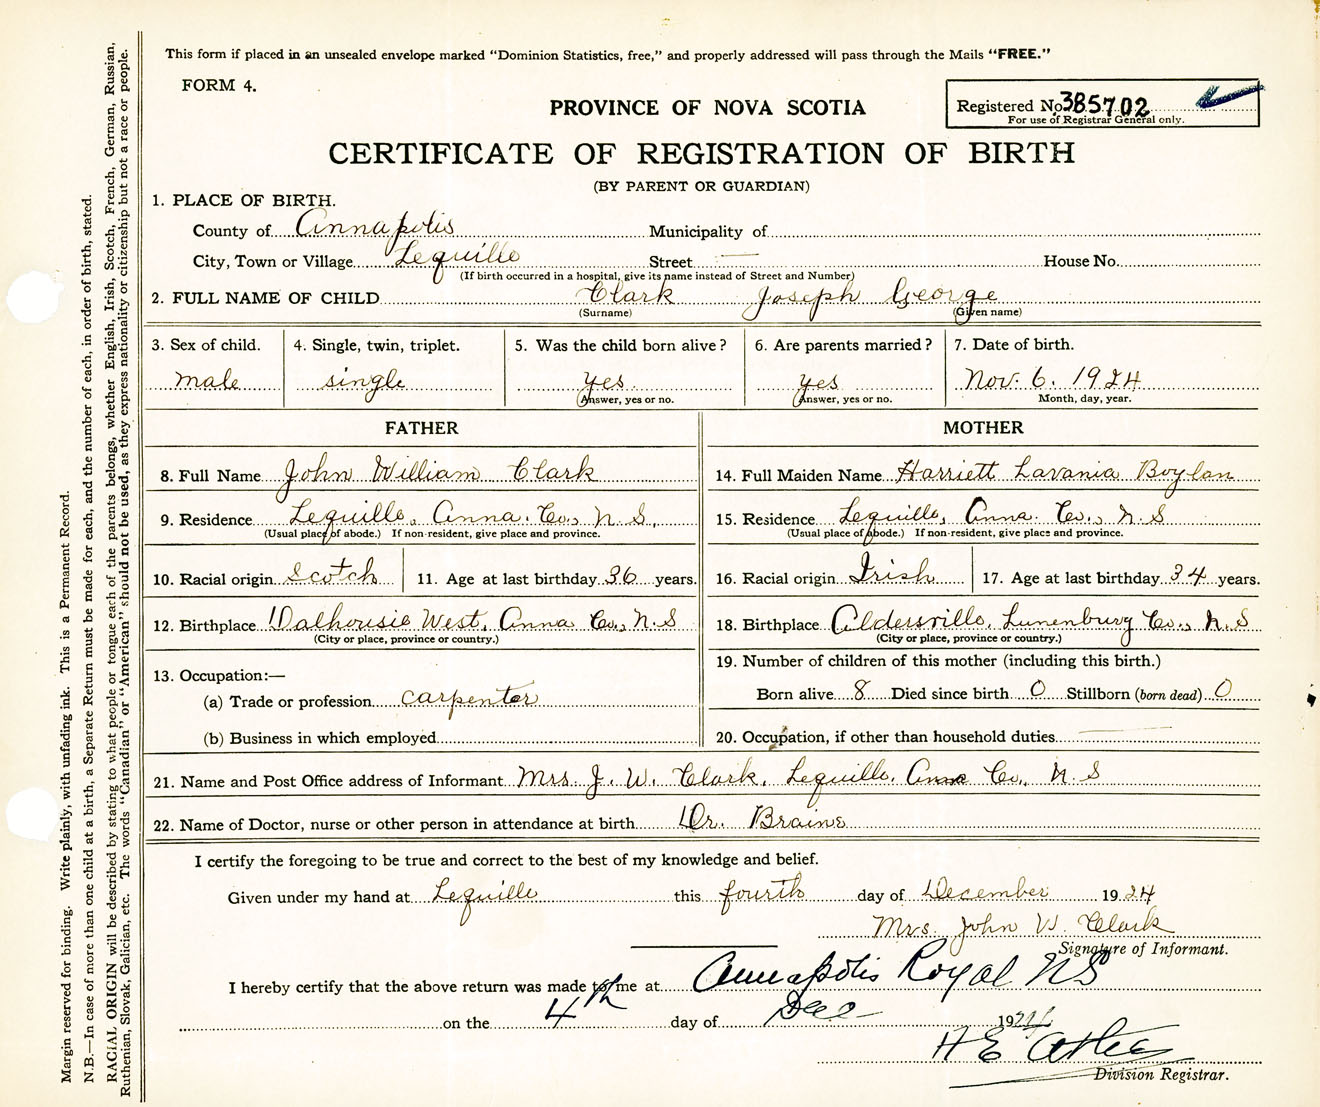 This form if placed in an unsealed envelope marked "Dominion Statistics, free," and properly addressed will pass through the Mails "FREE."
FORM 4.
PROVINCE OF NOVA SCOTIA
Registered No. 385702
For use of Registrar General only.
CERTIFICATE OF REGISTRATION OF BIRTH
(BY PARENT OR GUARDIAN)
1. PLACE OF BIRTH.
County of Annapolis Municipality of
City, Town or Village Lequille Street — House No.
(If birth occurred in a hospital, give its name instead of Street and Number)
2. FULL NAME OF CHILD Clark Joseph George
(Surname) (Given name)
3. Sex of child. 4. Single, twin, triplet. 5. Was the child born alive? 6. Are parents married? 7. Date of birth.
male single yes yes Nov. 6. 1924
Answer, yes or no. Answer, yes or no. Month, day, year.
FATHER MOTHER
8. Full Name John William Clark 14. Full Maiden Name Harriett Lavania Boylan
9. Residence Lequille, Anna. Co., N.S. 15. Residence Lequille, Anna. Co., N.S
(Usual place of abode.) If non-resident, give place and province. (Usual place of abode.) If non-resident, give place and province.
10. Racial origin Scotch 11. Age at last birthday 36 years. 16. Racial origin Irish 17. Age at last birthday 34 years.
12. Birthplace Dalhousie West, Anna Co., N.S 18. Birthplace Aldersville, Lunenburg Co., N.S
(City or place, province or country.) (City or place, province or country.)
13. Occupation:— 19. Number of children of this mother (including this birth.)
(a) Trade or profession carpenter Born alive 8 Died since birth 0 Stillborn (born dead) 0
(b) Business in which employed 20. Occupation, if other than household duties —
21. Name and Post Office address of Informant Mrs. J. W. Clark, Lequille, Anna Co., N.S
22. Name of Doctor, nurse or other person in attendance at birth Dr. Braine
I certify the foregoing to be true and correct to the best of my knowledge and belief.
Given under my hand at Lequille this fourth day of December 1924
Mrs. John W. Clark
Signature of Informant.
I hereby certify that the above return was made to me at Annapolis Royal NS
on the 4th day of Dec 1924
H E
Division Registrar.
Margin reserved for binding. Write plainly, with unfading ink. This is a Permanent Record.
N.B.—In case of more than one child at a birth, a Separate Return must be made for each, and the number of each, in order of birth, stated.
RACIAL ORIGIN will be described by stating to what people or tongue each of the parents belongs, whether English, Irish, Scotch, French, German, Russian,
Ruthenian, Slovak, Galician, etc. The words "Canadian" or "American" should not be used, as they express nationality or citizenship but not a race or people.